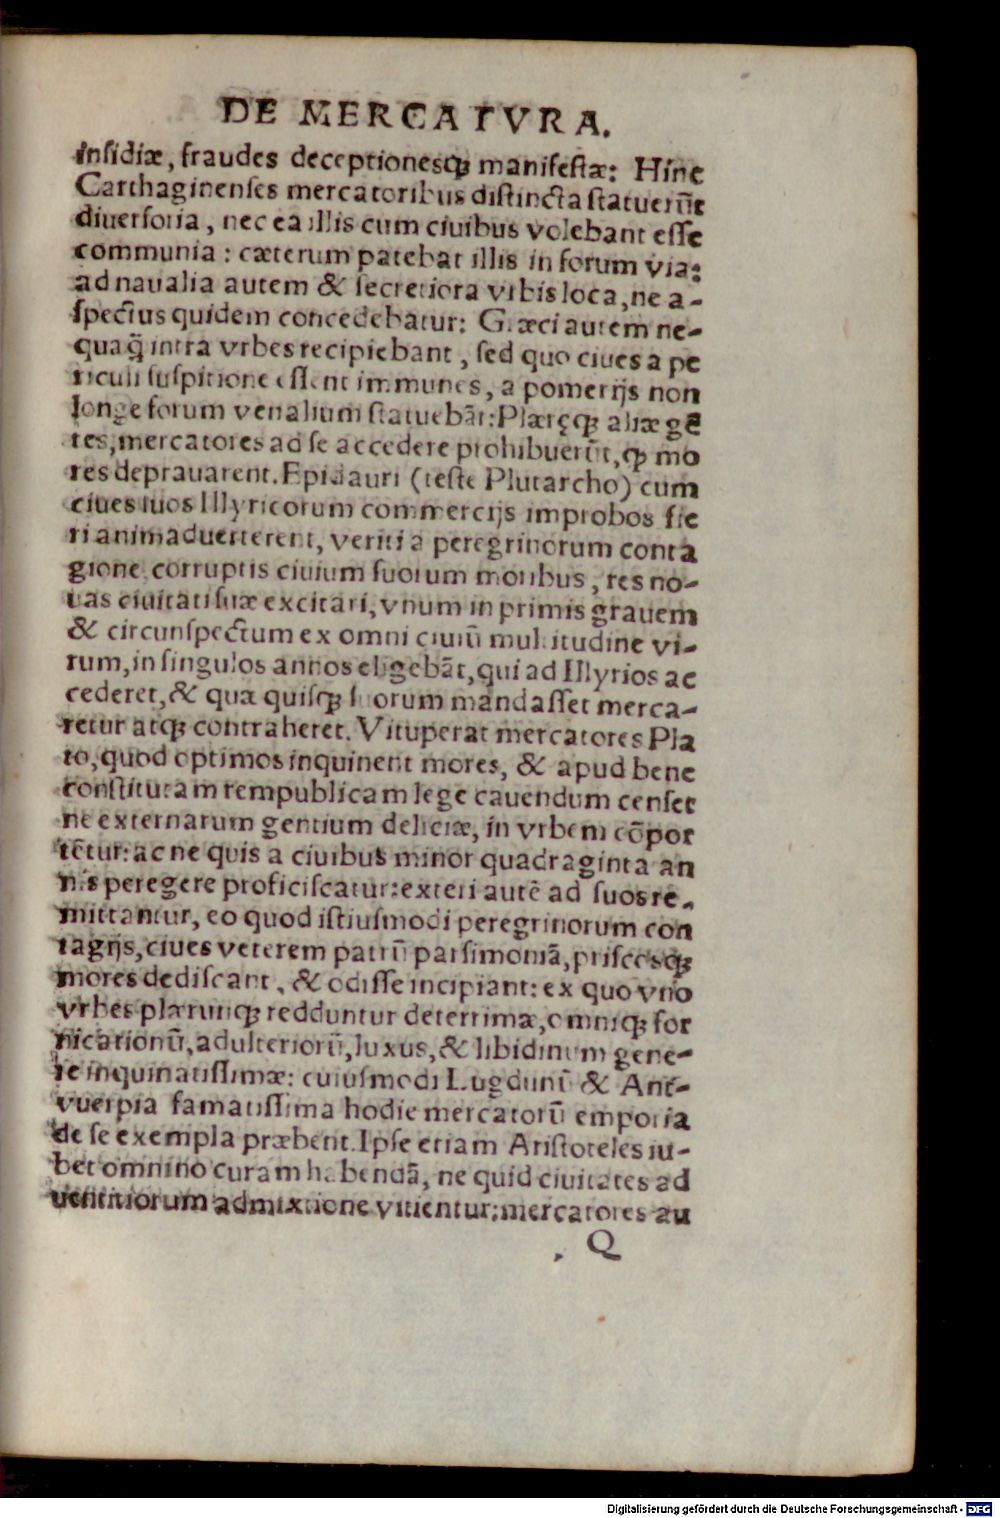 DE MERCATVRA.
insidiæ, fraudes deceptionesq́; manifestæ: Hinc
Carthaginenses mercatoribus distincta statuerũt
diuersoria, nec ea illis cum ciuibus volebant esse
communia: cæterum patebat illis in forum via:
ad naualia autem & secretiora vrbis loca, ne a-
spectus quidem concedebatur: Græci autem ne-
quaq̃ intra vrbes recipiebant, sed quo ciues a pe
riculi suspitione essent immunes, a pomerijs non
longe forum venalium statuebãt: Plæręq; aliæ gẽ
tes, mercatores ad se accedere prohibuerũt, q mo
res deprauarent. Epidauri (teste Plutarcho) cum
ciues suos Illyricorum commercijs improbos fie
ri animaduerterent, veriti a peregrinorum conta
gione corruptis ciuium suorum moribus, res no-
uas ciuitati suæ excitari, vnum in primis grauem
& circunspectum ex omni ciuiũ multitudine vi-
rum, in singulos annos eligebãt, qui ad Illyrios ac
cederet, & quæ quisq; suorum mandasset merca-
retur atq; contraheret. Vituperat mercatores Pla
to, quod optimos inquinent mores, & apud bene
constitutam rempublicam lege cauendum censet
ne externarum gentium deliciæ, in vrbem cõpor
tẽtur: ac ne quis a ciuibus minor quadraginta an
nis peregere proficiscatur: exteri autẽ ad suos re-
mittantur, eo quod istiusmodi peregrinorum con
tagijs, ciues veterem patrũ parsimoniã, priscosq;
mores dediscant, & odisse incipiant: ex quo vno
vrbes plærunq; redduntur deterrimæ, omniq; for
nicationũ, adulteriorũ, luxus, & libidinum gene-
re inquinatissimæ: cuiusmodi Lugdunũ & Ant-
vuerpia famatissima hodie mercatorũ emporia
de se exempla præbent. Ipse etiam Aristoteles iu-
bet omnino curam habendã, ne quid ciuitates ad
uentitiorum admixtione vitientur: mercatores au
Q
Digitalisierung gefördert durch die Deutsche Forschungsgemeinschaft - DFG